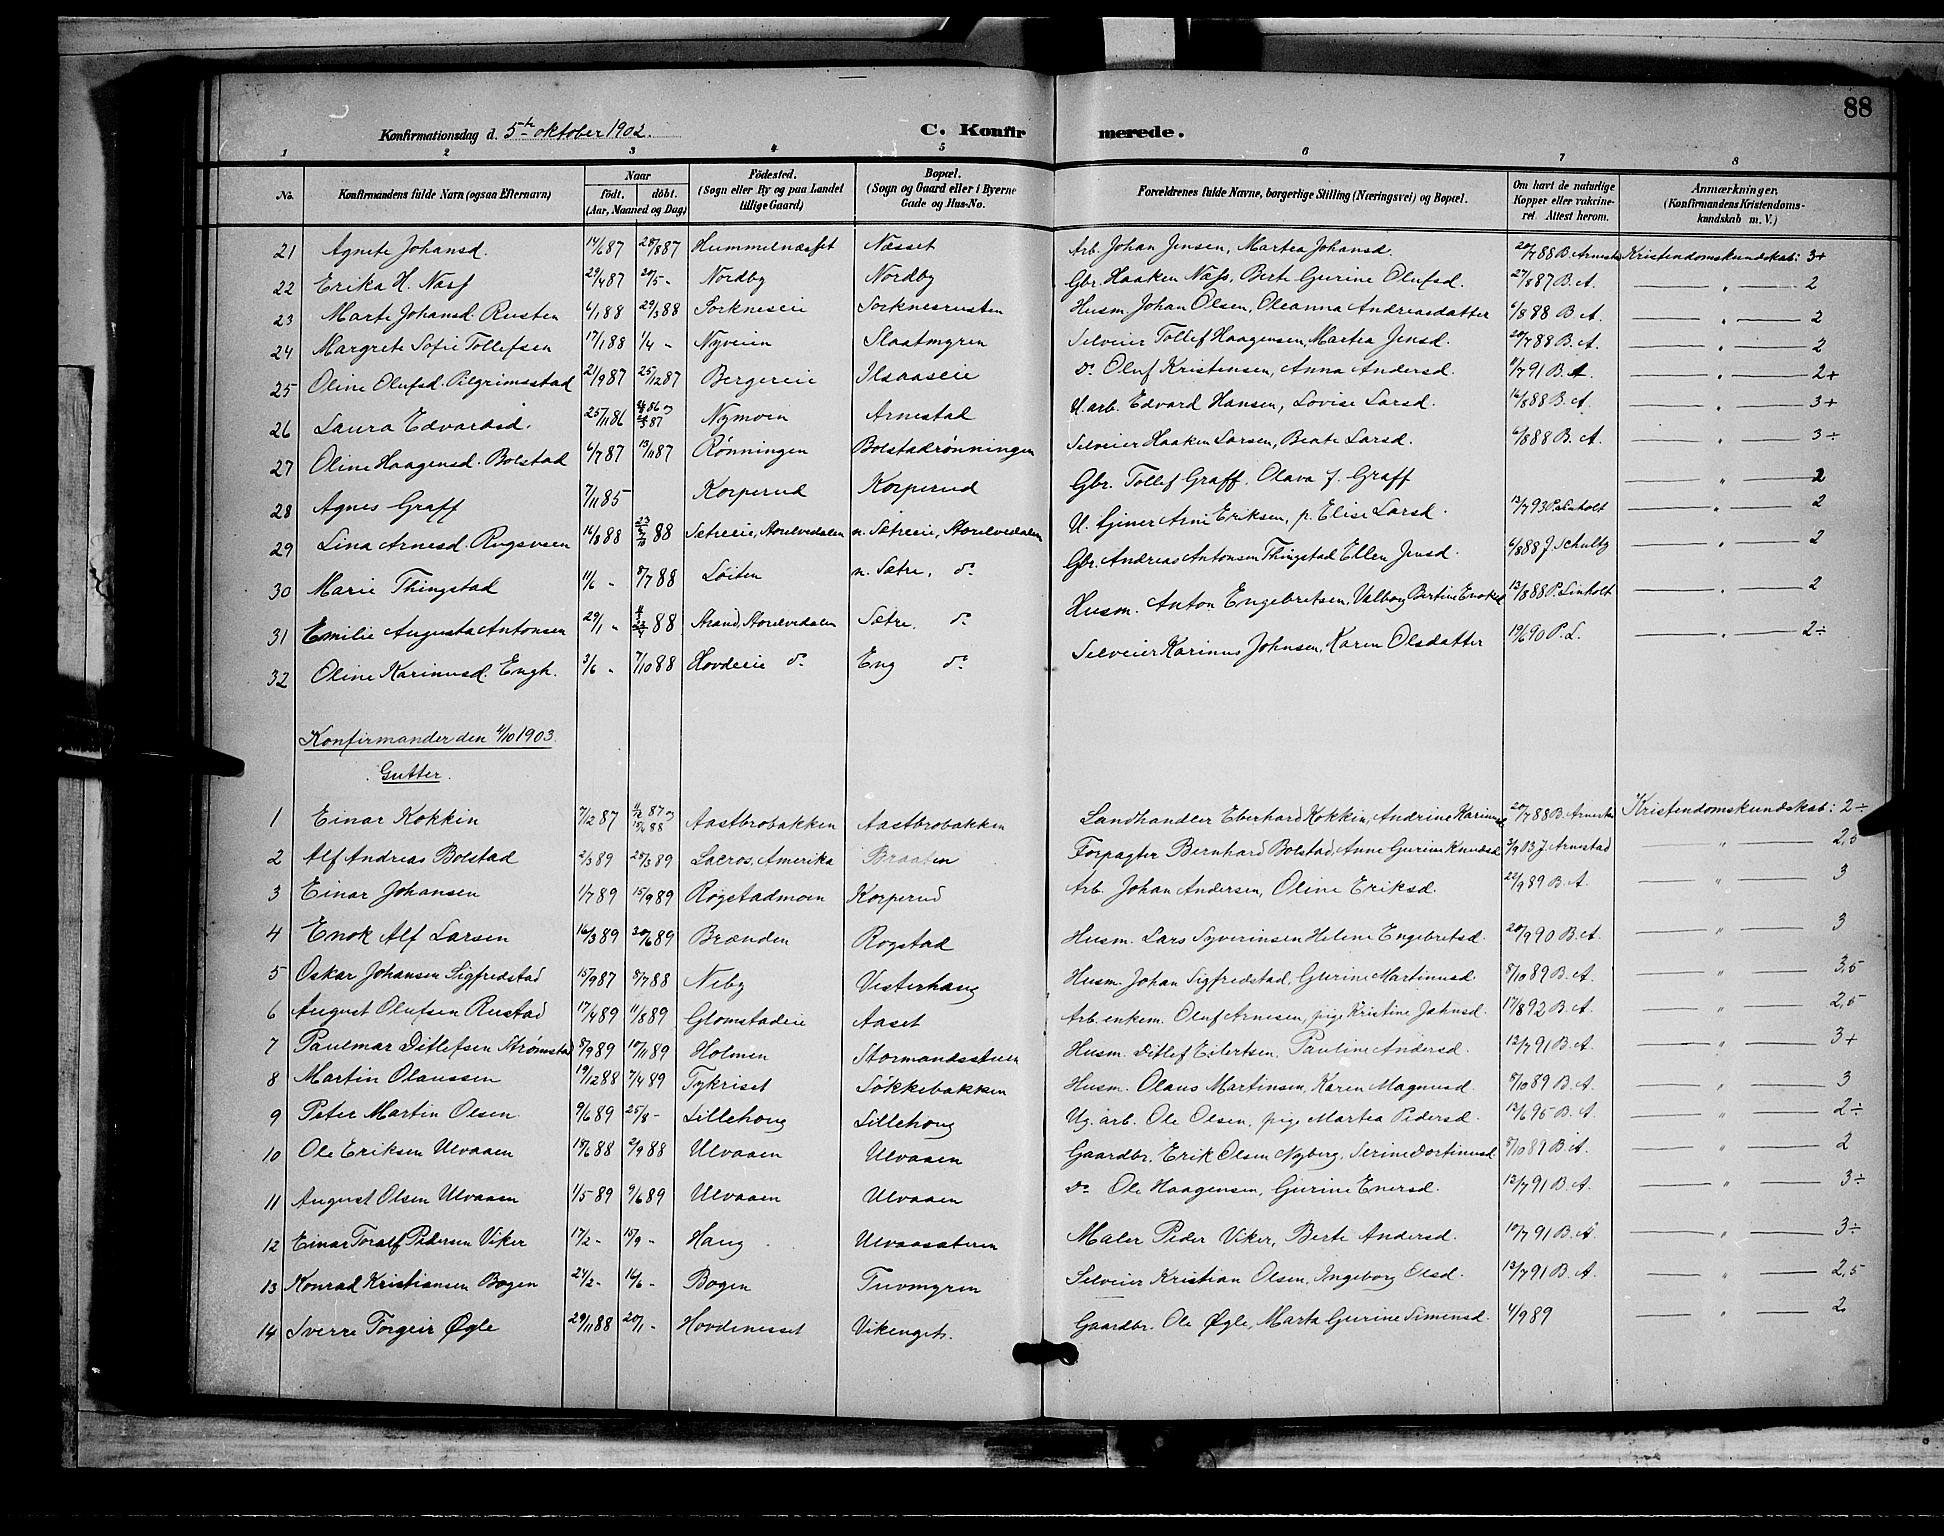 88
Konfirmationsdag d. 5te oktober 1902. C. Konfirmerede.
1 2 3 4 5 6 7 8
No. Konfirmandens fulde Navn (ogsaa Efternavn) Naar født, døbt. (Aar, Maaned og Dag) Fødested. (Sogn eller By og paa Landet tillige Gaard) Bopæl. (Sogn og Gaard eller i Byerne Gade og Hus-No. Forældrenes fulde Navne, borgerlige Stilling (Næringsvei) og Bopæl. Om havt de naturlige Kopper eller vakcineret. Attest herom. Anmærkninger, (Konfirmandens Kristendomskundskab m. V.)
21 Agnete Johansd. 14/6 87 28/8 87 Hummelnæsset Næsset Arb. Johan Jensen, Martea Johansd. 20/7 88 B. Arnestad Kristendomskundskab: 3+
22 Erika H. Næss 29/4 87 20/5 - Nordby Nordby Gbr. Haaken Næss, Berte Gurine Olufsd. 27/8 87 B. A. " 2
23 Marte Johansd. Rusten 6/1 88 29/3 88 Sorkneseie Sorknesrusten Husm. Johan Olsen, Oleanna Andreasdatter 6/8 88 B. A. " 2
24 Margrete Sofie Tollefsen 17/1 88 1/4 - Nyveien Slaatmyren Selveier Tollef Haagensen, Martea Jensd. 20/7 88 B. A. " 2
25 Oline Olufsd. Pilgrimsstad 21/9 87 25/12 87 Bergereie Ilsaaseie do. Oluf Kristensen, Anna Andersd. 11/7 91 B. A. " 2+
26 Laura Edvardsd. 25/11 86 Nymoen Arnestad U. arb. Edvard Hansen, Lovise Larsd. 16/8 88 B. A. " 3+
27 Oline Haagensd. Bolstad 6/7 87 13/11 87 Rønningen Bolstadrønningen Selveier Haaken Larsen, Beate Larsd. 6/8 88 B. A. " 3÷
28 Agnes Graff 7/11 85 Korperud Korperud Gbr. Tollef Graff, Olava f. Graff " 2
29 Lina Arnesd. Rugsveen 16/8 88 88 Sætreeie, Storelvedalen n. Sætreeie, Storelvedalen U. tjener Arne Eriksen, p. Elise Larsd. 13/7 93 P. Linholt " 2
30 Marie Thingstad 11/6 - 8/7 88 Løiten n. Sætre, do. Gbr. Andreas Antonsen Thingstad Ellen Jensd. 6/8 88 J. Schultz " 2
31 Emilie Augusta Antonsen 29/1 - 88 Strand, Storelvedalen Sætre, do. Husm. Anton Engebretsen, Valborg Bertine Enoksd. 12/8 88 P. Linholt " 2
32 Oline Karinusd. Engh. 3/6 - 7/10 88 Hovdeeie do. Eng do. Selveier Karinus Johnsen, Karen Olsdatter 19/6 90 P. L. " 2÷
Konfirmander den 4/10 1903.
Gutter.
1 Einar Kokkin 7/12 87 Aastbrobakken Aastbrobakken Landhandler Eberhard Kokkin, Andrine Karinusd. 20/7 88 B. Arnestad Kristendomskundskab: 2÷
2 Alf Andreas Bolstad 2/3 89 28/3 89 Lacros, Amerika Braaten Forpagter Bernhard Bolstad, Anne Gurine Knudsd. 3/9 03 J. Arnestad " 2,5
3 Einar Johansen 1/7 89 15/9 89 Rogstadmoen Korperud Arb. Johan Andersen, Oline Eriksd. 22/9 89 B. A. " 3
4 Enok Alf Larsen 16/3 89 30/6 89 Brænden Rogstad Husm. Lars Syverinsen Helene Engebretsd. 20/9 90 B. A. " 3
5 Oskar Johansen Sigfredstad 15/9 87 8/7 88 Neby Vesterhaug Husm. Johan Sigfredstad, Gurine Martinusd. 8/10 89 B. A. " 3,5
6 August Olufsen Rustad 17/4 89 11/8 89 Glomstadeie Aaset Arb. enkem. Oluf Arnesen, pige Kristine Johnsd. 17/8 92 B. A. " 2,5
7 Paulmar Ditlefsen Strømstad 8/9 89 10/11 89 Holmen Stormandsstuen Husm. Ditlef Eilertsen, Pauline Andersd. 12/7 91 B. A. " 3+
8 Martin Olaussen 19/12 88 7/4 89 Tykriset Søkkebakken Husm. Olaus Martinsen, Karen Magnusd. 8/10 89 B. A. " 3
9 Peter Martin Olsen 9/6 89 25/8 - Lillehoug Lillehoug Ug. arb. Ole Olsen, pige Martea Pedersd. 12/6 95 B. A. " 2÷
10 Ole Eriksen Ulvaaen 18/6 88 2/9 88 Ulvaaen Ulvaaen Gaardbr. Erik Olsen Nyberg, Serine Dortinusd. 8/10 89 B. A. " 2
11 August Olsen Ulvaaen 1/5 89 9/6 89 Ulvaaen Ulvaaen do. Ole Haagensen, Gurine Enersd. 12/7 91 B. A. " 3÷
12 Einar Toralf Pedersen Viker 17/2 - 15/9 - Haug Ulvaasæteren Maler Peder Viker, Berte Andersd. 10/7 91 B. A. " 3÷
13 Konrad Kristiansen Bogen 24/2 - 16/6 - Bogen Tuvmyren Selveier Kristian Olsen, Ingeborg Olsd. 12/7 91 B. A. " 2,5
14 Sverre Torgeir Øgle 29/11 88 20/1 - Hovdenesset Vikenget. Gaardbr. Ole Øgle, Marta Gurine Simensd. 4/9 89 " 2